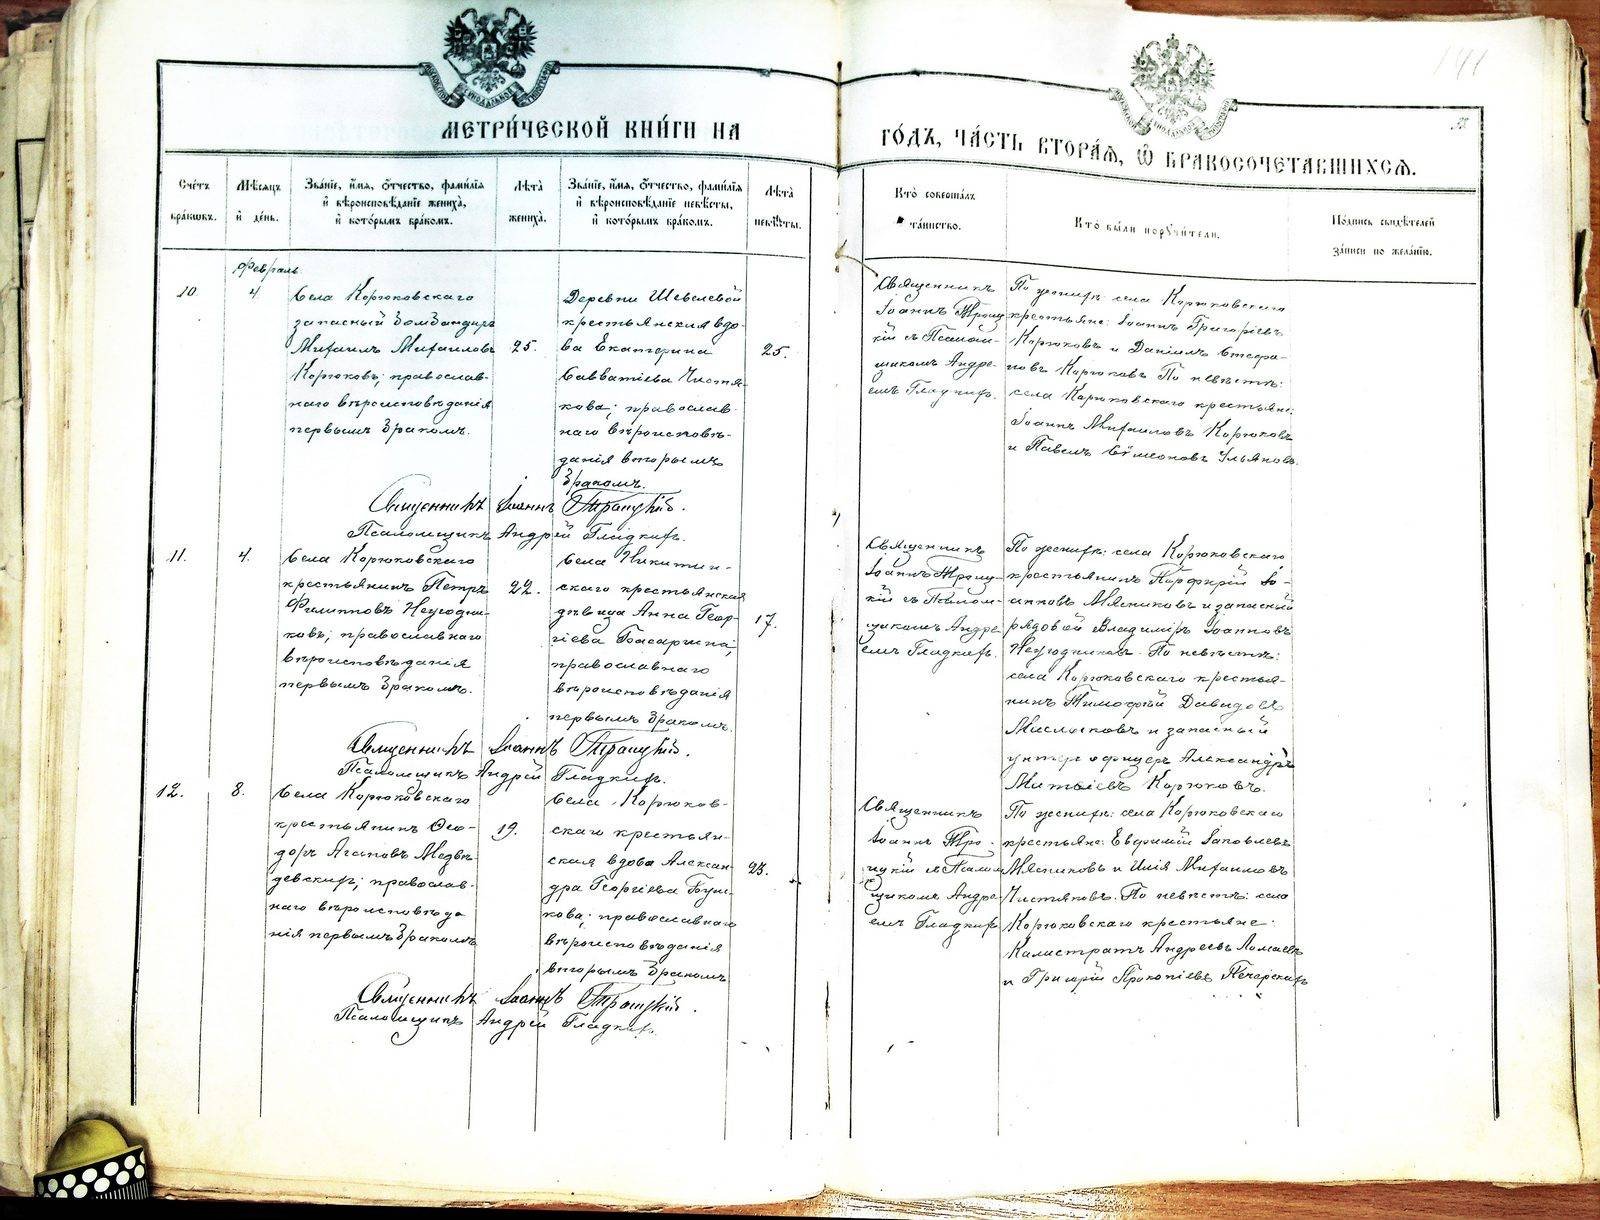 МЕТРИ́ЧЕСКОЙ КНИ́ГИ НА
ГО́ДЪ, ЧА́СТЬ ВТОРА́Ѧ, Ѿ БРАКОСОЧЕТАВШИХСѦ.
141
Сче́тъ бра́кѡвъ.
Мѣ́сѧцъ и҆ де́нь.
Зва́нїе, и҆́мѧ, ѻ҆́тчество, фами́лїѧ
и҆ вѣроисповѣ́данїе жениха̀,
и҆ кото́рымъ бра́комъ.
Лѣ́та жениха̀.
Зва́нїе, и҆́мѧ, ѻ҆́тчество, фами́лїѧ
и҆ вѣроисповѣ́данїе невѣ́сты,
и҆ кото́рымъ бра́комъ.
Лѣ́та невѣ́сты.
Кто̀ соверша́лъ та́инство.
Кто̀ бы́ли порꙋчи́тели.
По́дпись свидѣ́телей за́писи по жела́нїю.
Февраль
10.
4.
Села Корюковскаго
запасный бомбандиръ
Михаилъ Михаиловъ
Корюковъ; православ-
наго вѣроисповѣданія
первымъ бракомъ.
25.
Деревни Шевелевой
крестьянская вдо-
ва Екатерина
Савватіева Чистя-
кова; православ-
наго вѣроисповѣ-
данія вторымъ
бракомъ.
25.
Священникъ
Іоаннъ Троиц
кій съ Псалом-
щикомъ Андре-
емъ Гладкихъ.
По женихѣ села Корюковскаго
крестьяне: Іоаннъ Григоріевъ
Корюковъ и Даніилъ Стефа-
новъ Корюковъ По невѣстѣ:
села Корюковскаго крестьяне:
Іоаннъ Михаиловъ Корюковъ
и Павелъ Сѵмеоновъ Ульяновъ.
Священникъ Іоаннъ Троицкій.
Псаломщикъ Андрей Гладкихъ.
11.
4.
Села Корюковскаго
крестьянинъ Петръ
Филипповъ Неугодни-
ковъ; православнаго
вѣроисповѣданія
первымъ бракомъ.
22.
Села Никитин-
скаго крестьянская
дѣвица Анна Геор-
гіева Басаргина;
православнаго
вѣроисповѣданія
первымъ бракомъ.
17.
Священникъ
Іоаннъ Троиц-
кій съ Псалом-
щикомъ Андре-
емъ Гладкихъ.
По женихѣ: села Корюковскаго
крестьянинъ Порфирій Іо-
анновъ Мясниковъ и запасный
рядовой Владиміръ Іоанновъ
Неугодниковъ. По невѣстѣ:
села Корюковскаго крестья-
нинъ Тимофѣй Давидовъ
Масленковъ и запасный
унтеръ офицеръ Александръ
Матѳіевъ Корюковъ.
Священникъ Іоаннъ Троицкій.
Псаломщикъ Андрей Гладкихъ.
12.
8.
Села Корюковскаго
крестьянинъ Ѳео-
доръ Агаповъ Медвѣ-
девскихъ; православ-
наго вѣроисповѣда
нія первымъ бракомъ
19.
Села Корюков-
скаго крестьян-
ская вдова Алексан-
дра Георгіева
кова; православнаго
вѣроисповѣданія
вторымъ бракомъ
23.
Священникъ
Іоаннъ Тро-
ицкій съ Псалом
щикомъ Андре-
емъ Гладкихъ
По женихѣ: села Корюковскаго
крестьяне: Евфимій Іаковлевъ
Мясниковъ и Илія Михаиловъ
Чистяковъ. По невѣстѣ: села
Корюковскаго крестьяне:
Калистратъ Андреевъ Ломаевъ
и Григорій Прокопіевъ Печерскихъ
Священникъ Іоаннъ Троицкій.
Псаломщикъ Андрей Гладкихъ.